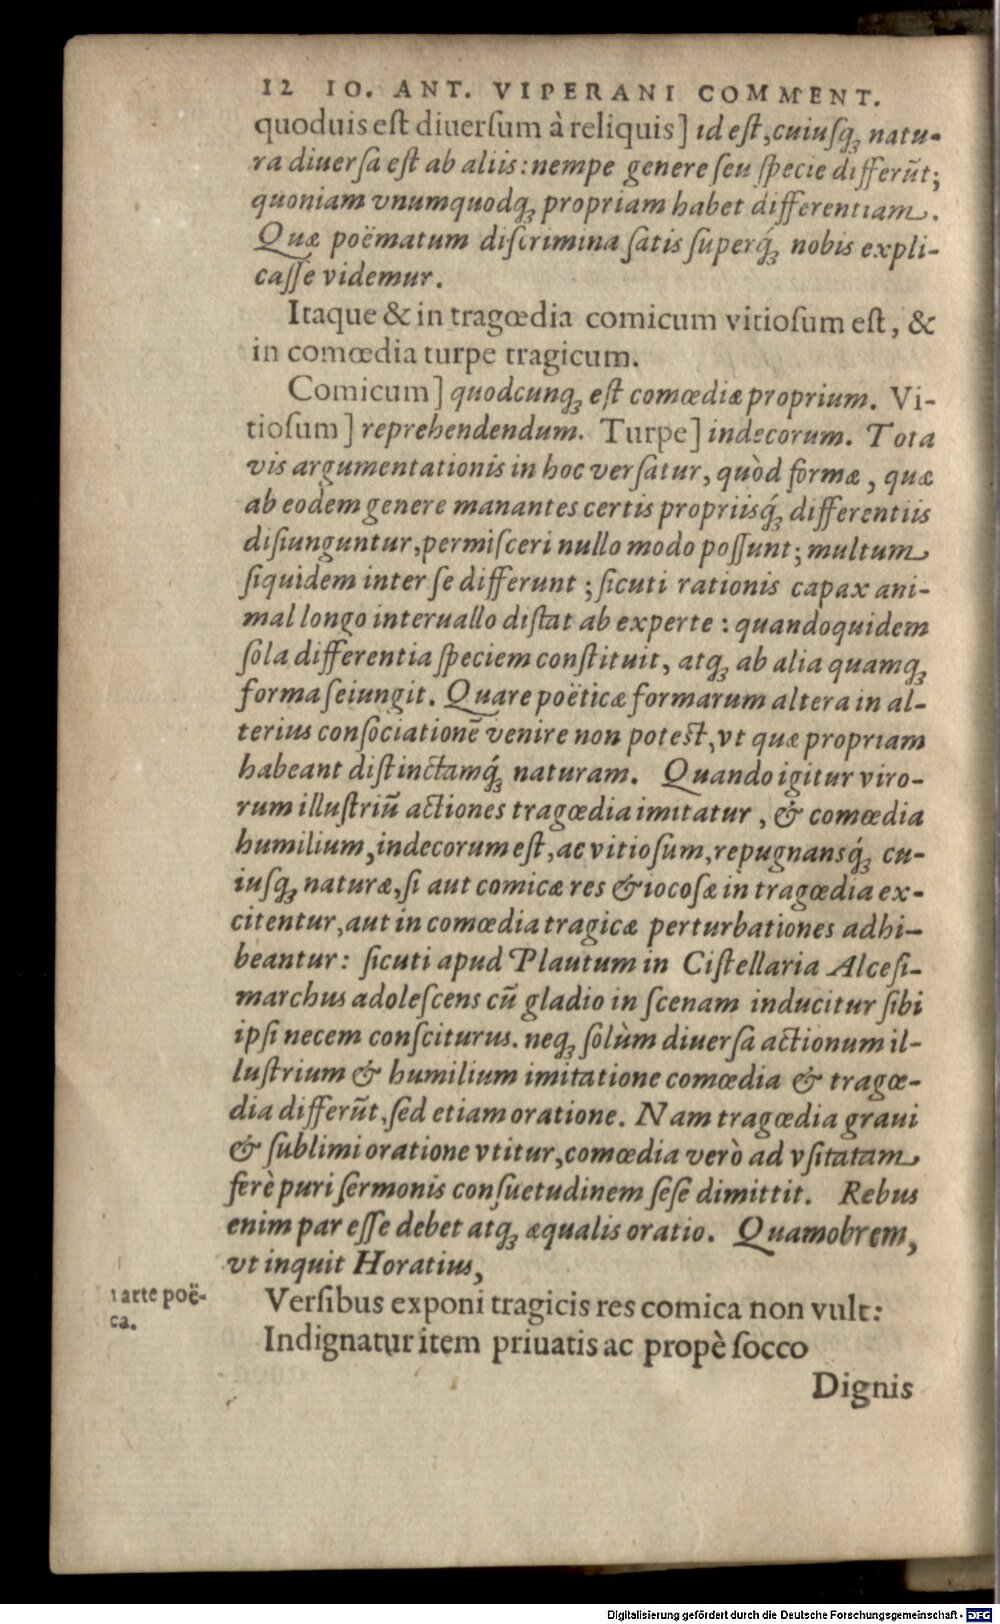 12 IO. ANT. VIPERANI COMMENT.
quoduis eſt diuerſum à reliquis] id eſt, cuiuſq; natu-
ra diuerſa eſt ab aliis: nempe genere ſeu ſpecie differũt;
quoniam vnumquodq; propriam habet differentiam.
Quæ poëmatum diſcrimina ſatis ſuperq́; nobis expli-
caſſe videmur.
Itaque & in tragœdia comicum vitioſum eſt, &
in comœdia turpe tragicum.
Comicum] quodcunq; eſt comœdiæ proprium. Vi-
tioſum] reprehendendum. Turpe] indecorum. Tota
vis argumentationis in hoc verſatur, quòd formæ, quæ
ab eodem genere manantes certis propriisq́; differentiis
diſiunguntur, permiſceri nullo modo poſſunt; multum
ſiquidem inter ſe differunt; ſicuti rationis capax ani-
mal longo interuallo diſtat ab experte: quandoquidem
ſola differentia ſpeciem conſtituit, atq; ab alia quamq;
forma ſeiungit. Quare poëticæ formarum altera in al-
terius conſociationē venire non poteſt, vt quæ propriam
habeant diſtinctamq́; naturam. Quando igitur viro-
rum illuſtriũ actiones tragœdia imitatur, & comœdia
humilium, indecorum eſt, ac vitioſum, repugnansq́; cu-
iuſq; naturæ, ſi aut comicæ res & iocoſæ in tragœdia ex-
citentur, aut in comœdia tragicæ perturbationes adhi-
beantur: ſicuti apud Plautum in Ciſtellaria Alceſi-
marchus adoleſcens cũ gladio in ſcenam inducitur ſibi
ipſi necem conſciturus. neq; ſolùm diuerſa actionum il-
luſtrium & humilium imitatione comœdia & tragœ-
dia differũt, ſed etiam oratione. Nam tragœdia graui
& ſublimi oratione vtitur, comœdia verò ad vſitatam
ferè puri ſermonis conſuetudinem ſeſe dimittit. Rebus
enim par eſſe debet atq; æqualis oratio. Quamobrem,
vt inquit Horatius,
arte poë-
ca.
Verſibus exponi tragicis res comica non vult:
Indignatur item priuatis ac propè ſocco
Dignis
Digitalisierung gefördert durch die Deutsche Forschungsgemeinschaft - DFG